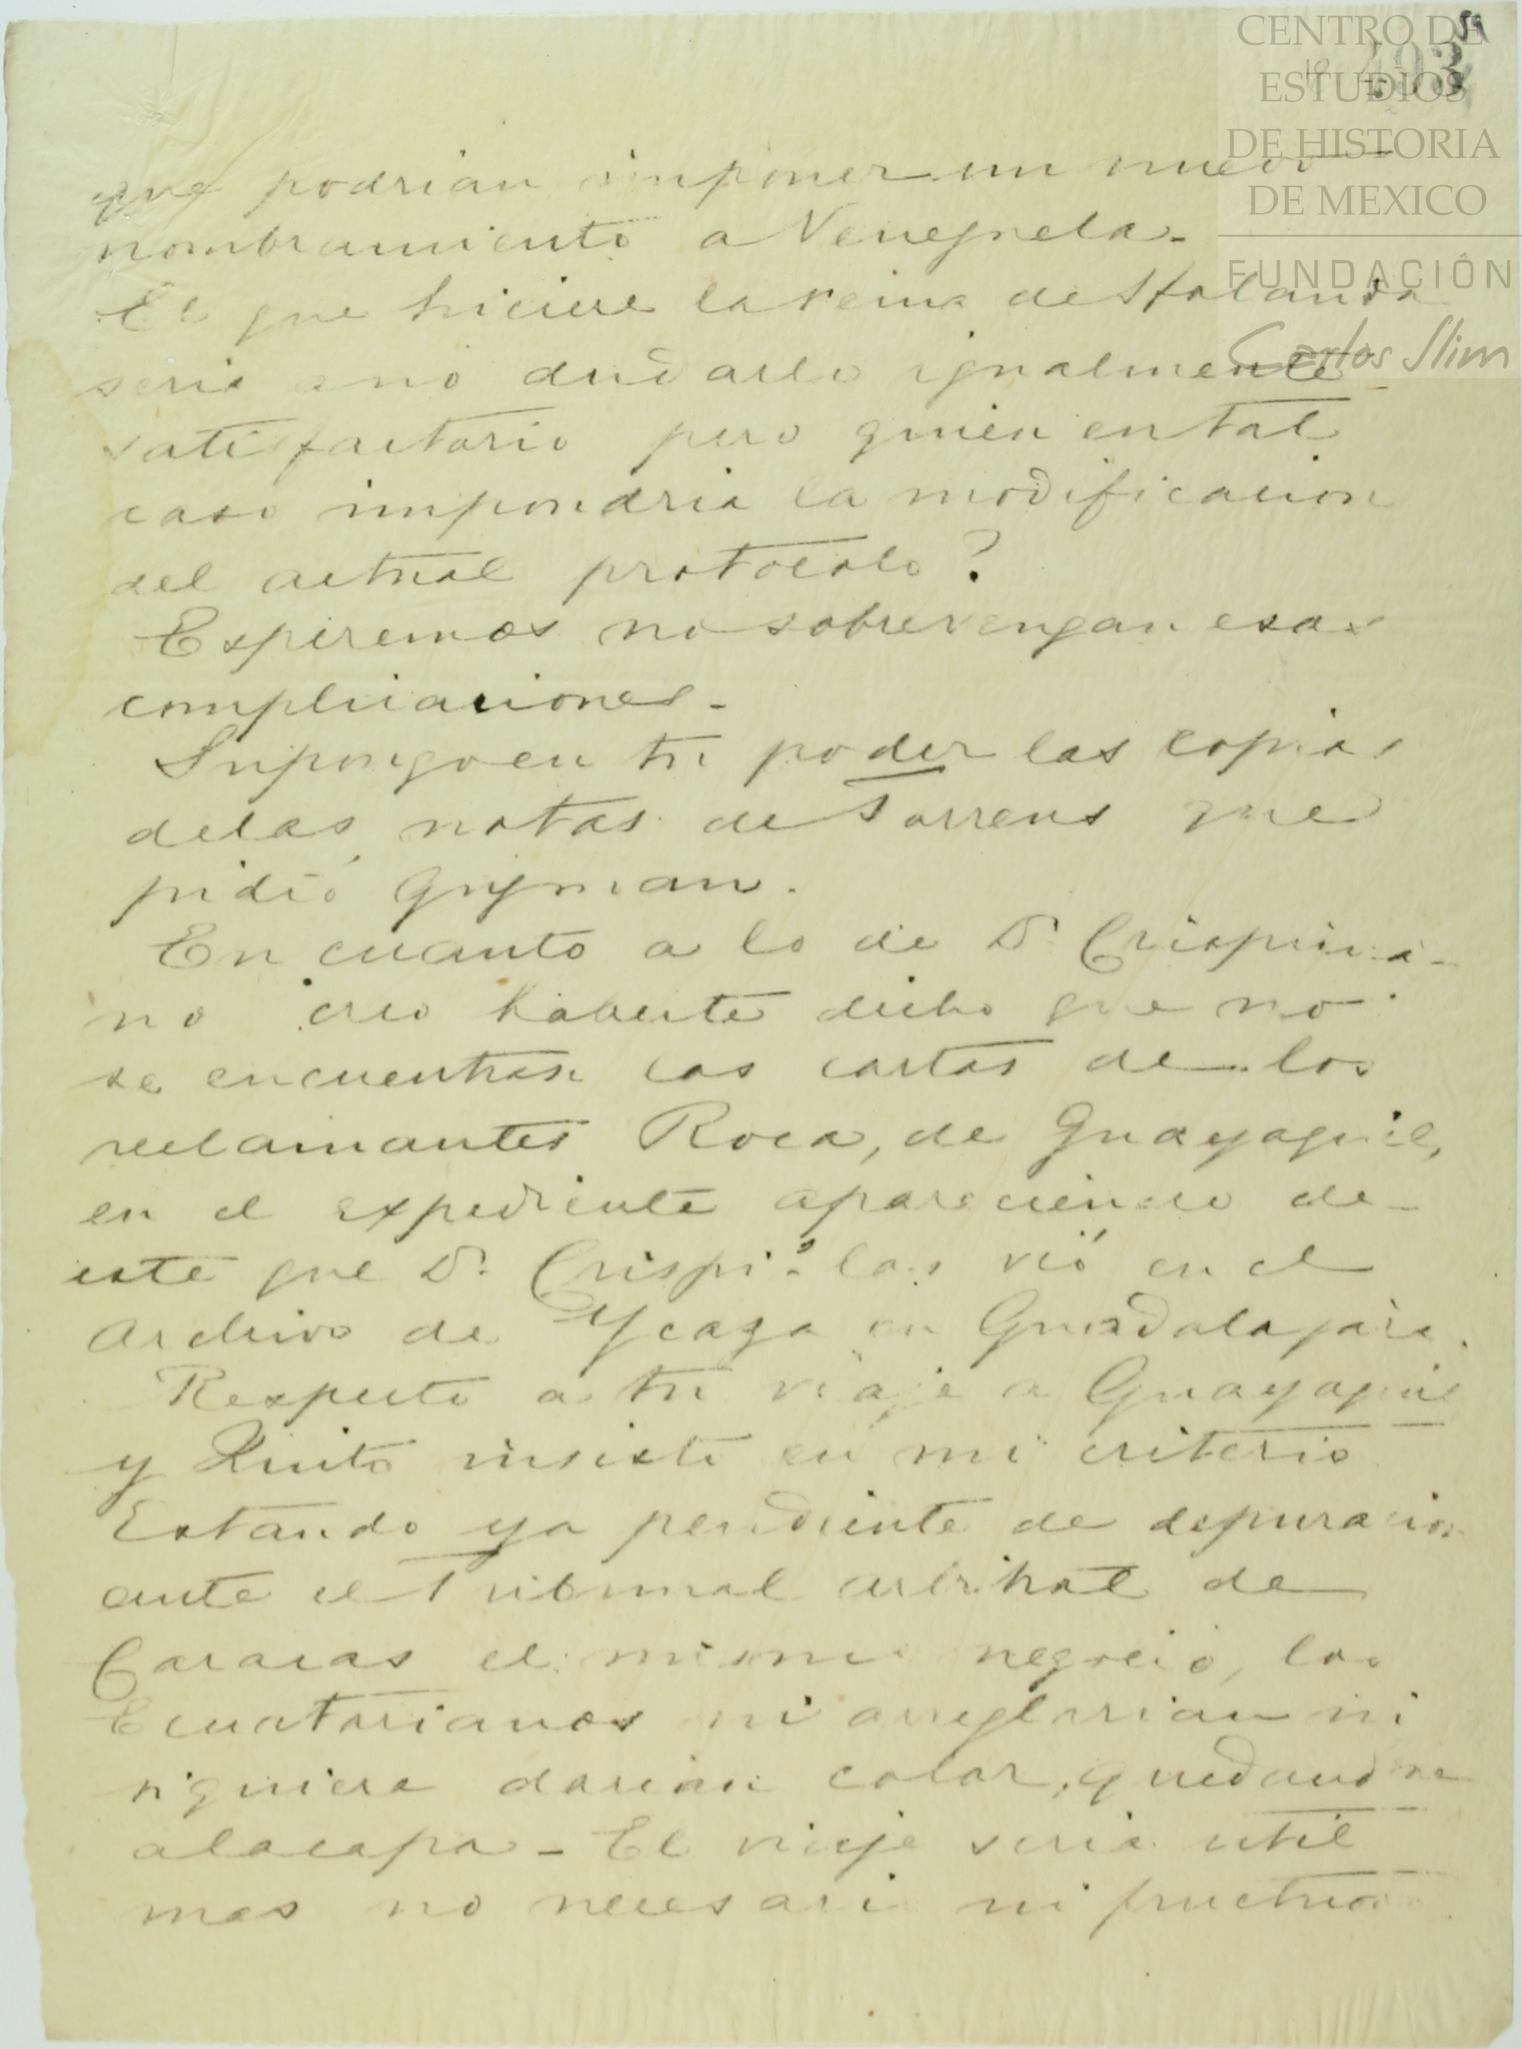 CENTRO DE
ESTUDIOS
DE HISTORIA
DE MEXICO
FUNDACIÓN
Carlos Slim
que podrian imponer un nuevo
nombramiento a Venezuela-
El que hiciere la reina de Holanda
seria a no dudarlo igualmente
satisfactorio pero quien en tal
caso impondria la modificacion
del actual protocolo?
Esperemos no sobrevengan esas
complicaciones-
Supongo en tu poder las copias
de las notas de Torrens que
pidió Guzman.
En cuanto a lo de Dn. Crispinia-
no creo haberte dicho que no
se encuentran las cartas de los
reclamantes Roca, de Guayaquil,
en el expediente apareciendo de
este que Dn. Crispino las vió en el
Archivo de Ycaza en Guadalajara.
Respecto a tu viaje a Guayaquil
y Quito insisto en mi criterio
Estando ya pendiente de depuracion
ante el Tribunal arbitral de
Caracas el mismo negocio, los
Ecuatorianos ni arreglarian ni
siquiera darian color, quedandose
a la capa- El viaje seria util
mas no necesario ni fructuoso